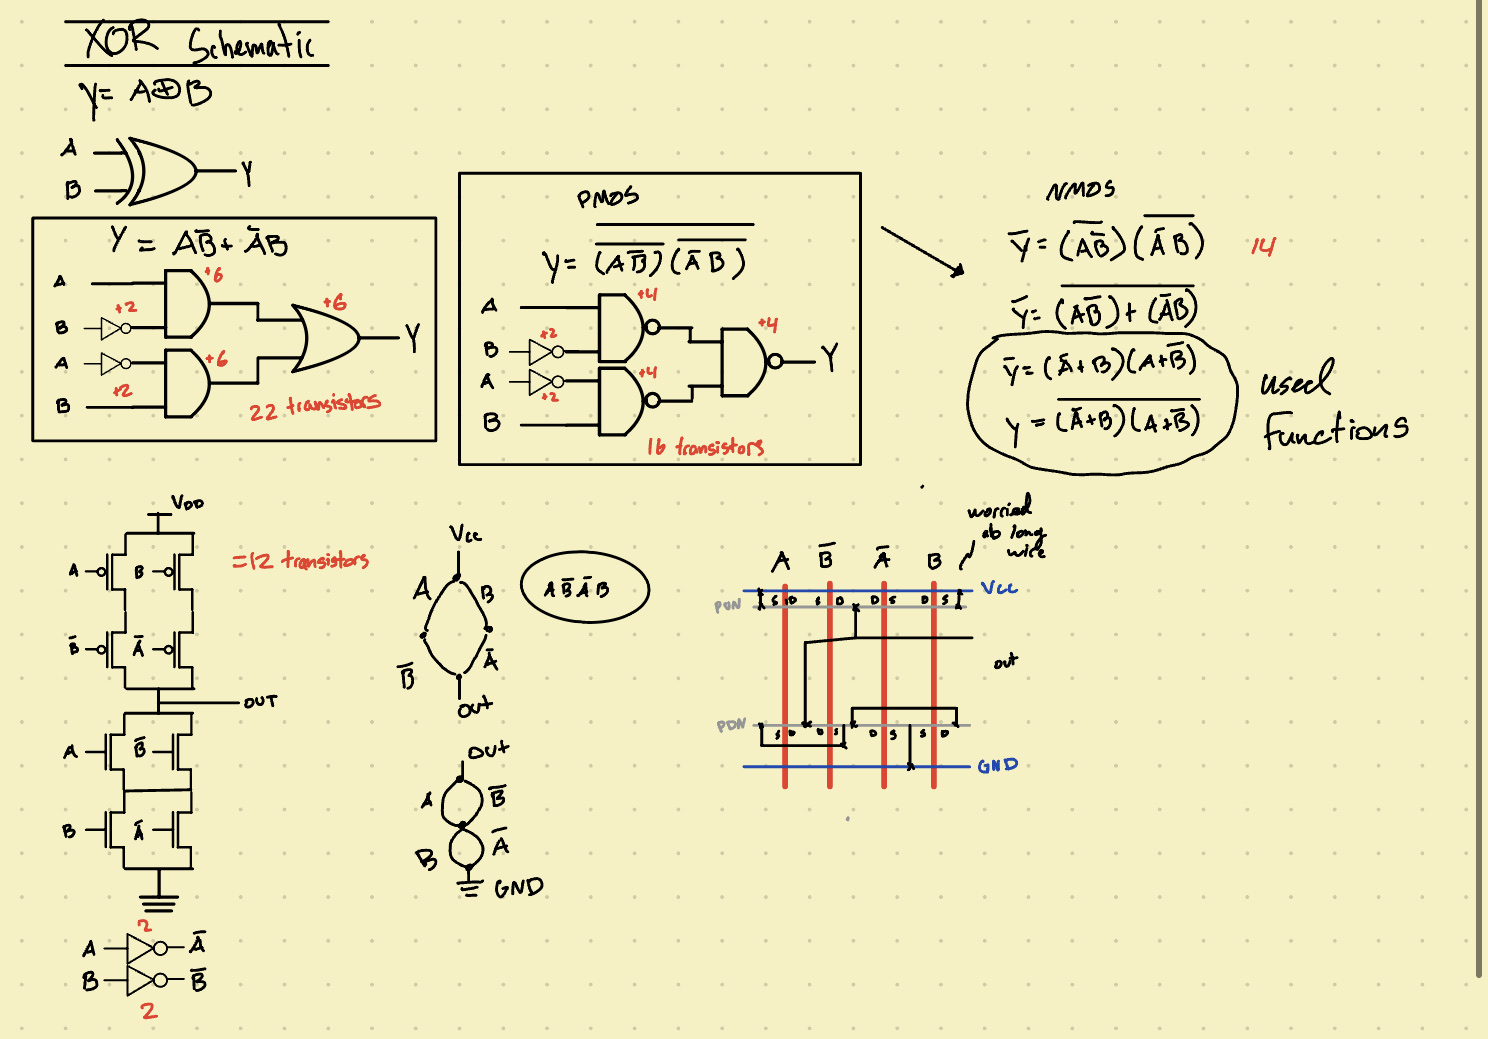 XOR Schematic
Y = A⊕B
A
B
Y
Y = AB̅ + A̅B
A
B
A
B
+2
+2
+6
+6
+6
Y
22 transistors
PMOS
Y = \overline{\overline{(AB̅)} \overline{(A̅B)}}
A
B
A
B
+2
+2
+4
+4
+4
Y
16 transistors
NMOS
Y̅ = \overline{(AB̅)} \overline{(A̅B)}
14
Y̅ = \overline{(AB̅) + (A̅B)}
Y̅ = (A̅+B)(A+B̅)
Y = \overline{(A̅+B)(A+B̅)}
used
functions
VDD
A
B
= 12 transistors
B̅
A̅
OUT
A
B̅
B
A̅
2
A
A̅
B
B̅
2
Vcc
A
B
B̅
A̅
Out
A B̅ A̅ B
Out
A
B̅
B
A̅
GND
worried
ab long
wire
A
B̅
A̅
B
Vcc
PUN
S D S D D S D S
out
PDN
S D D S D S S D
GND